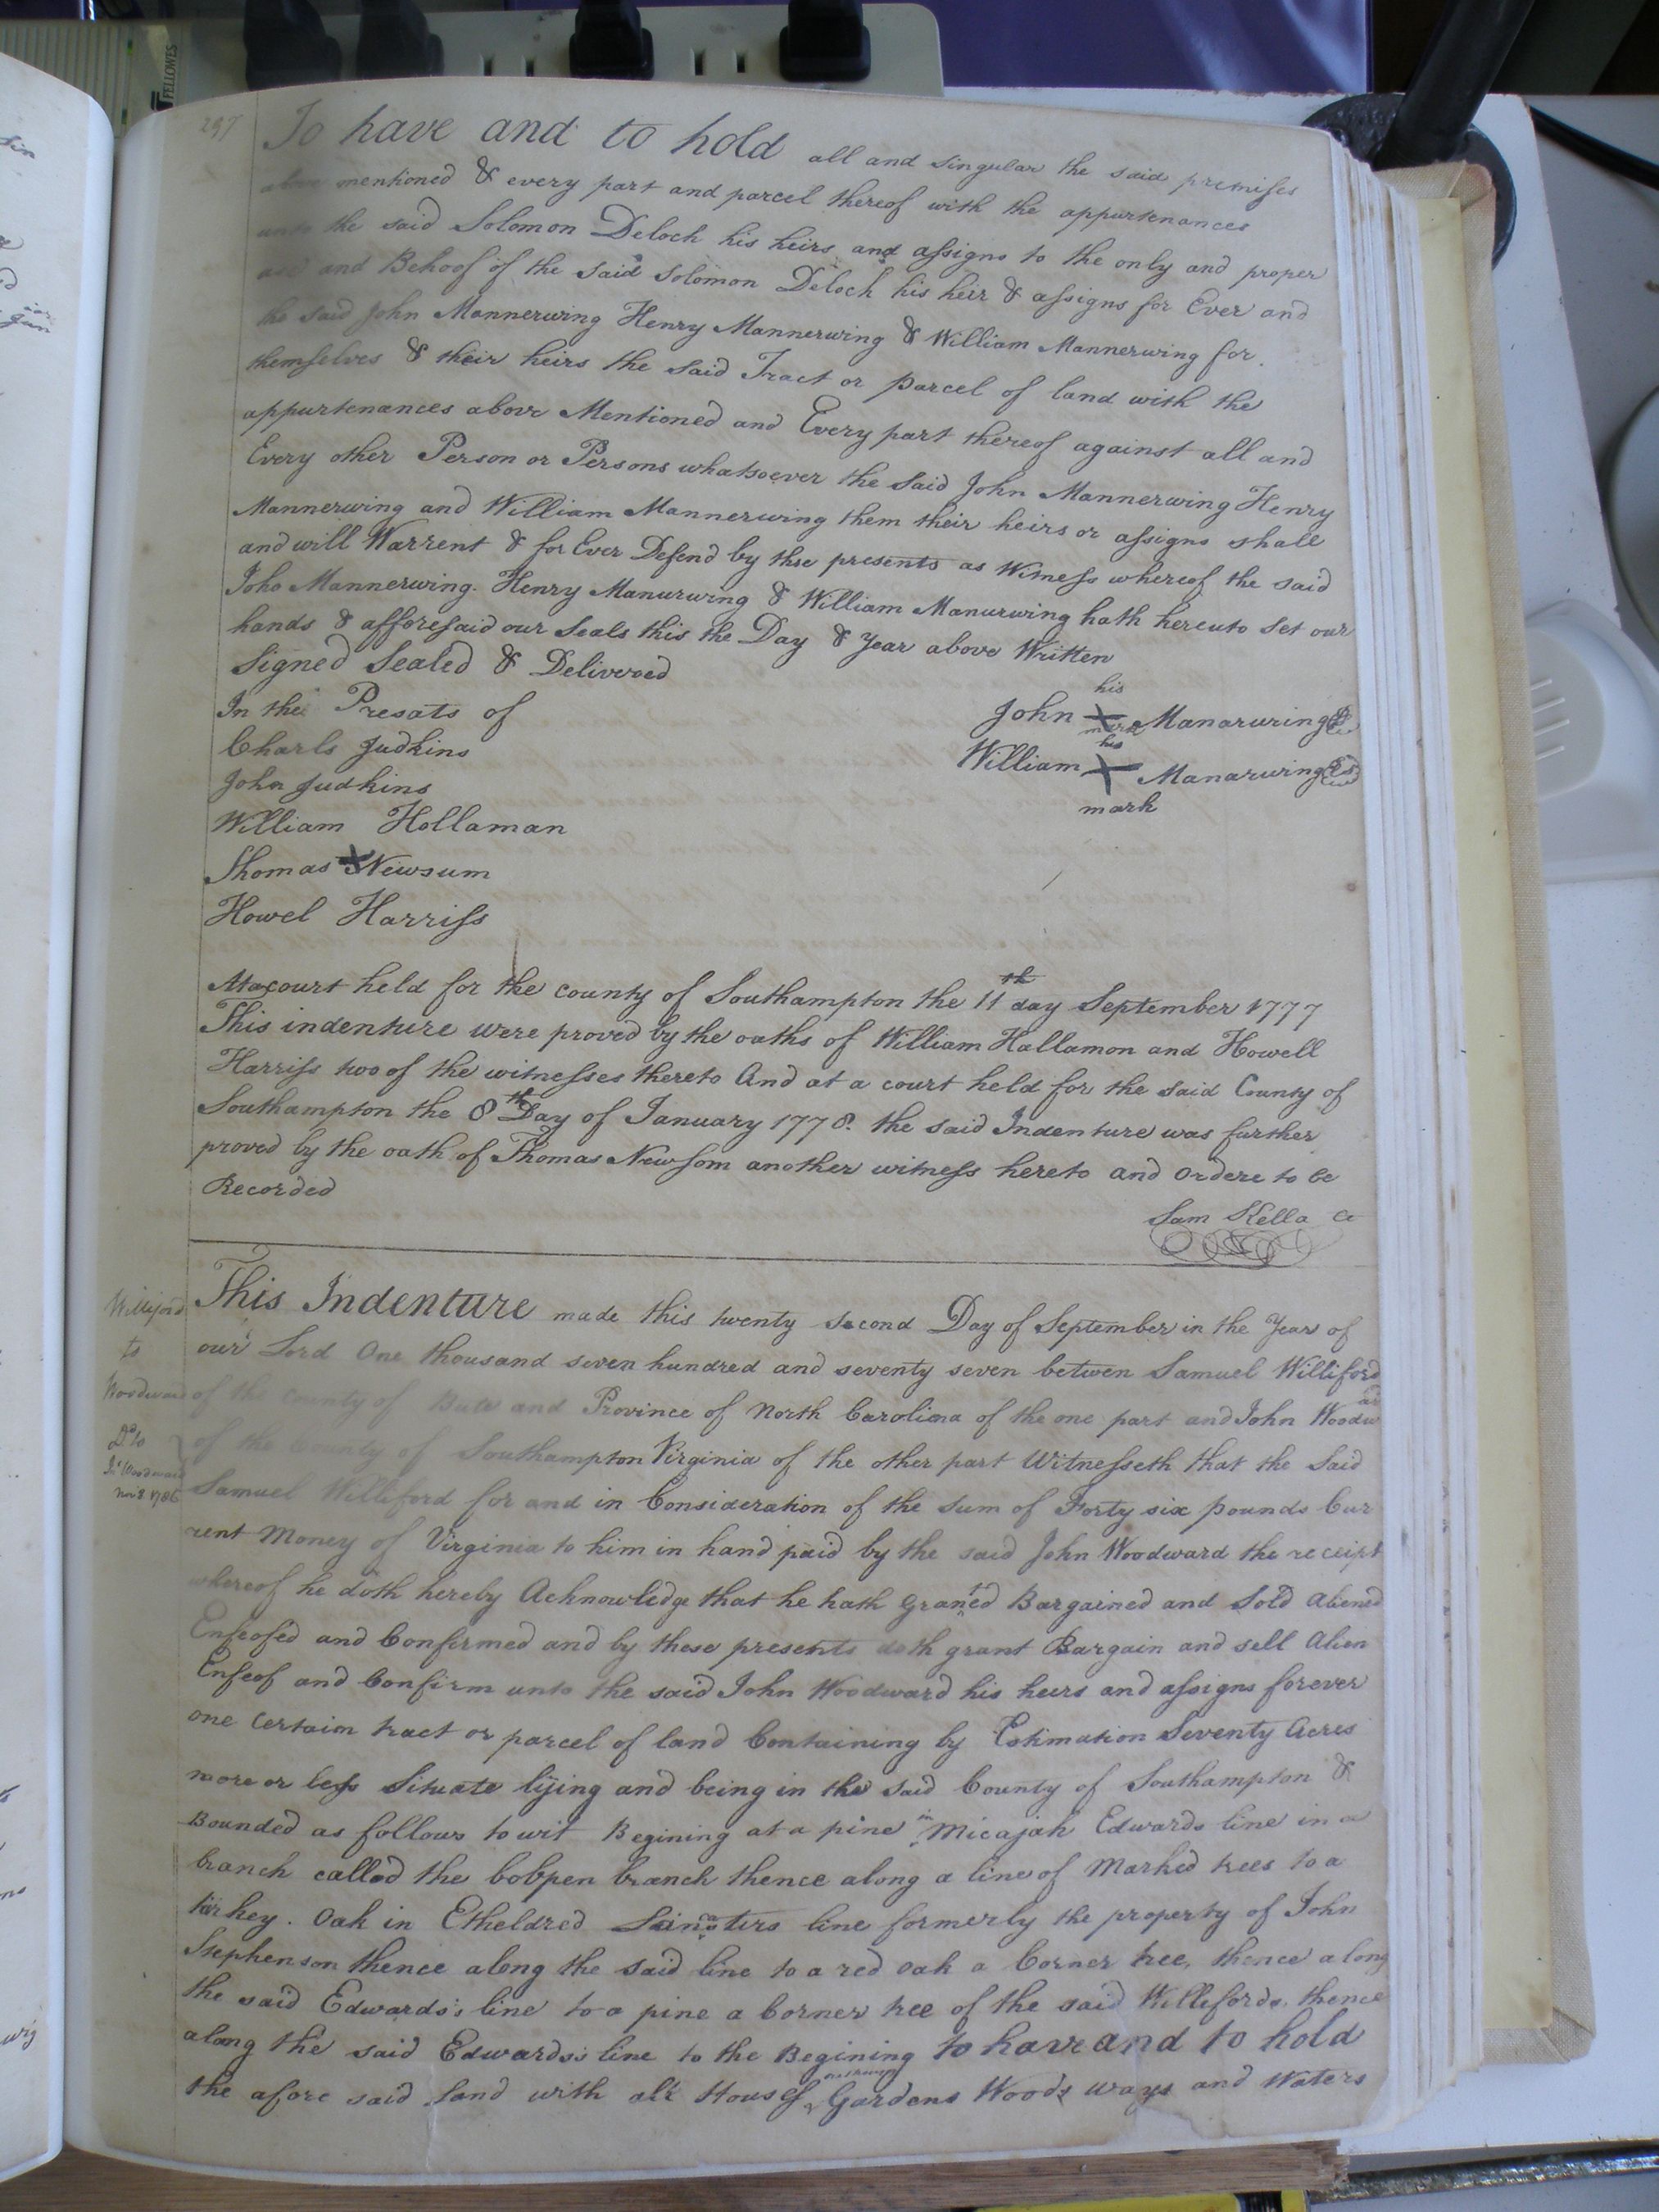 FELLOWES
297
To have and to hold all and singular the said premises
above mentioned & every part and parcel thereof with the appurtenances
unto the said Solomon Deloch his heirs and assigns to the only and proper
use and Behoof of the said Solomon Deloch his heir & assigns for Ever and
he said John Mannerwing Henry Mannerwing & William Mannerwing for
themselves & their heirs the said Tract or parcel of land with the
appurtenances above Mentioned and Every part thereof against all and
Every other Person or Persons whatsoever the said John Mannerwing Henry
Mannerwing and William Mannerwing them their heirs or assigns shall
and will Warrent & for Ever Defend by thse presents as Witness whereof the said
Joho Mannerwing. Henry Manurwing & William Manurwing hath hereuto set our
hands & afforesaid our Seals this the Day & Year above Written
Signed Sealed & Delivered
In the Presats of
Charls Judkins
John Judkins
William Hollaman
Thomas X Newsum
Howel Harriss
his
John X Manarwring
mark
his
William X Manarwring
mark
At a court held for the county of Southampton the 11th day September 1777
This indenture were proved by the oaths of William Hallamon and Howell
Harriss two of the witnesses thereto And at a court held for the said County of
Southampton the 8th Day of January 1778. the said Indenture was further
proved by the oath of Thomas Newsom another witness hereto and ordere to be
Recorded
Sam Kella
Williford
to
Woodward
Do to
Jn Woodward
Nov 8 1786
This Indenture made this twenty second Day of September in the Year of
our Lord One thousand seven hundred and seventy seven betwen Samuel Williford
of the County of Bute and Province of North Carolina of the one part and John Woodward
of the County of Southampton Virginia of the other part Witnesseth that the Said
Samuel Williford for and in Consideration of the Sum of Forty six pounds Cur
rent Money of Virginia to him in hand paid by the said John Woodward the receipt
whereof he doth hereby Acknowledge that he hath Granted Bargained and Sold Aliened
Enfeofed and Confirmed and by these presents doth grant Bargain and sell Alien
Enfeof and Confirm unto the said John Woodward his heirs and assigns forever
one Certain tract or parcel of land Containing by Estimation Seventy Acres
more or less Situate lying and being in the said County of Southampton &
Bounded as follows to wit Begining at a pine in Micajah Edwards line in a
branch called the bobpen branch thence along a line of Marked trees to a
turkey. Oak in Etheldred line formerly the property of John
Stephenson thence along the said line to a red oak a Corner tree, thence along
the said Edwards's line to a pine a Corner tree of the said Willifords. thence
along the said Edwards's line to the Begining to have and to hold
the afore said Land with all Houses Gardens Woods ways and Waters